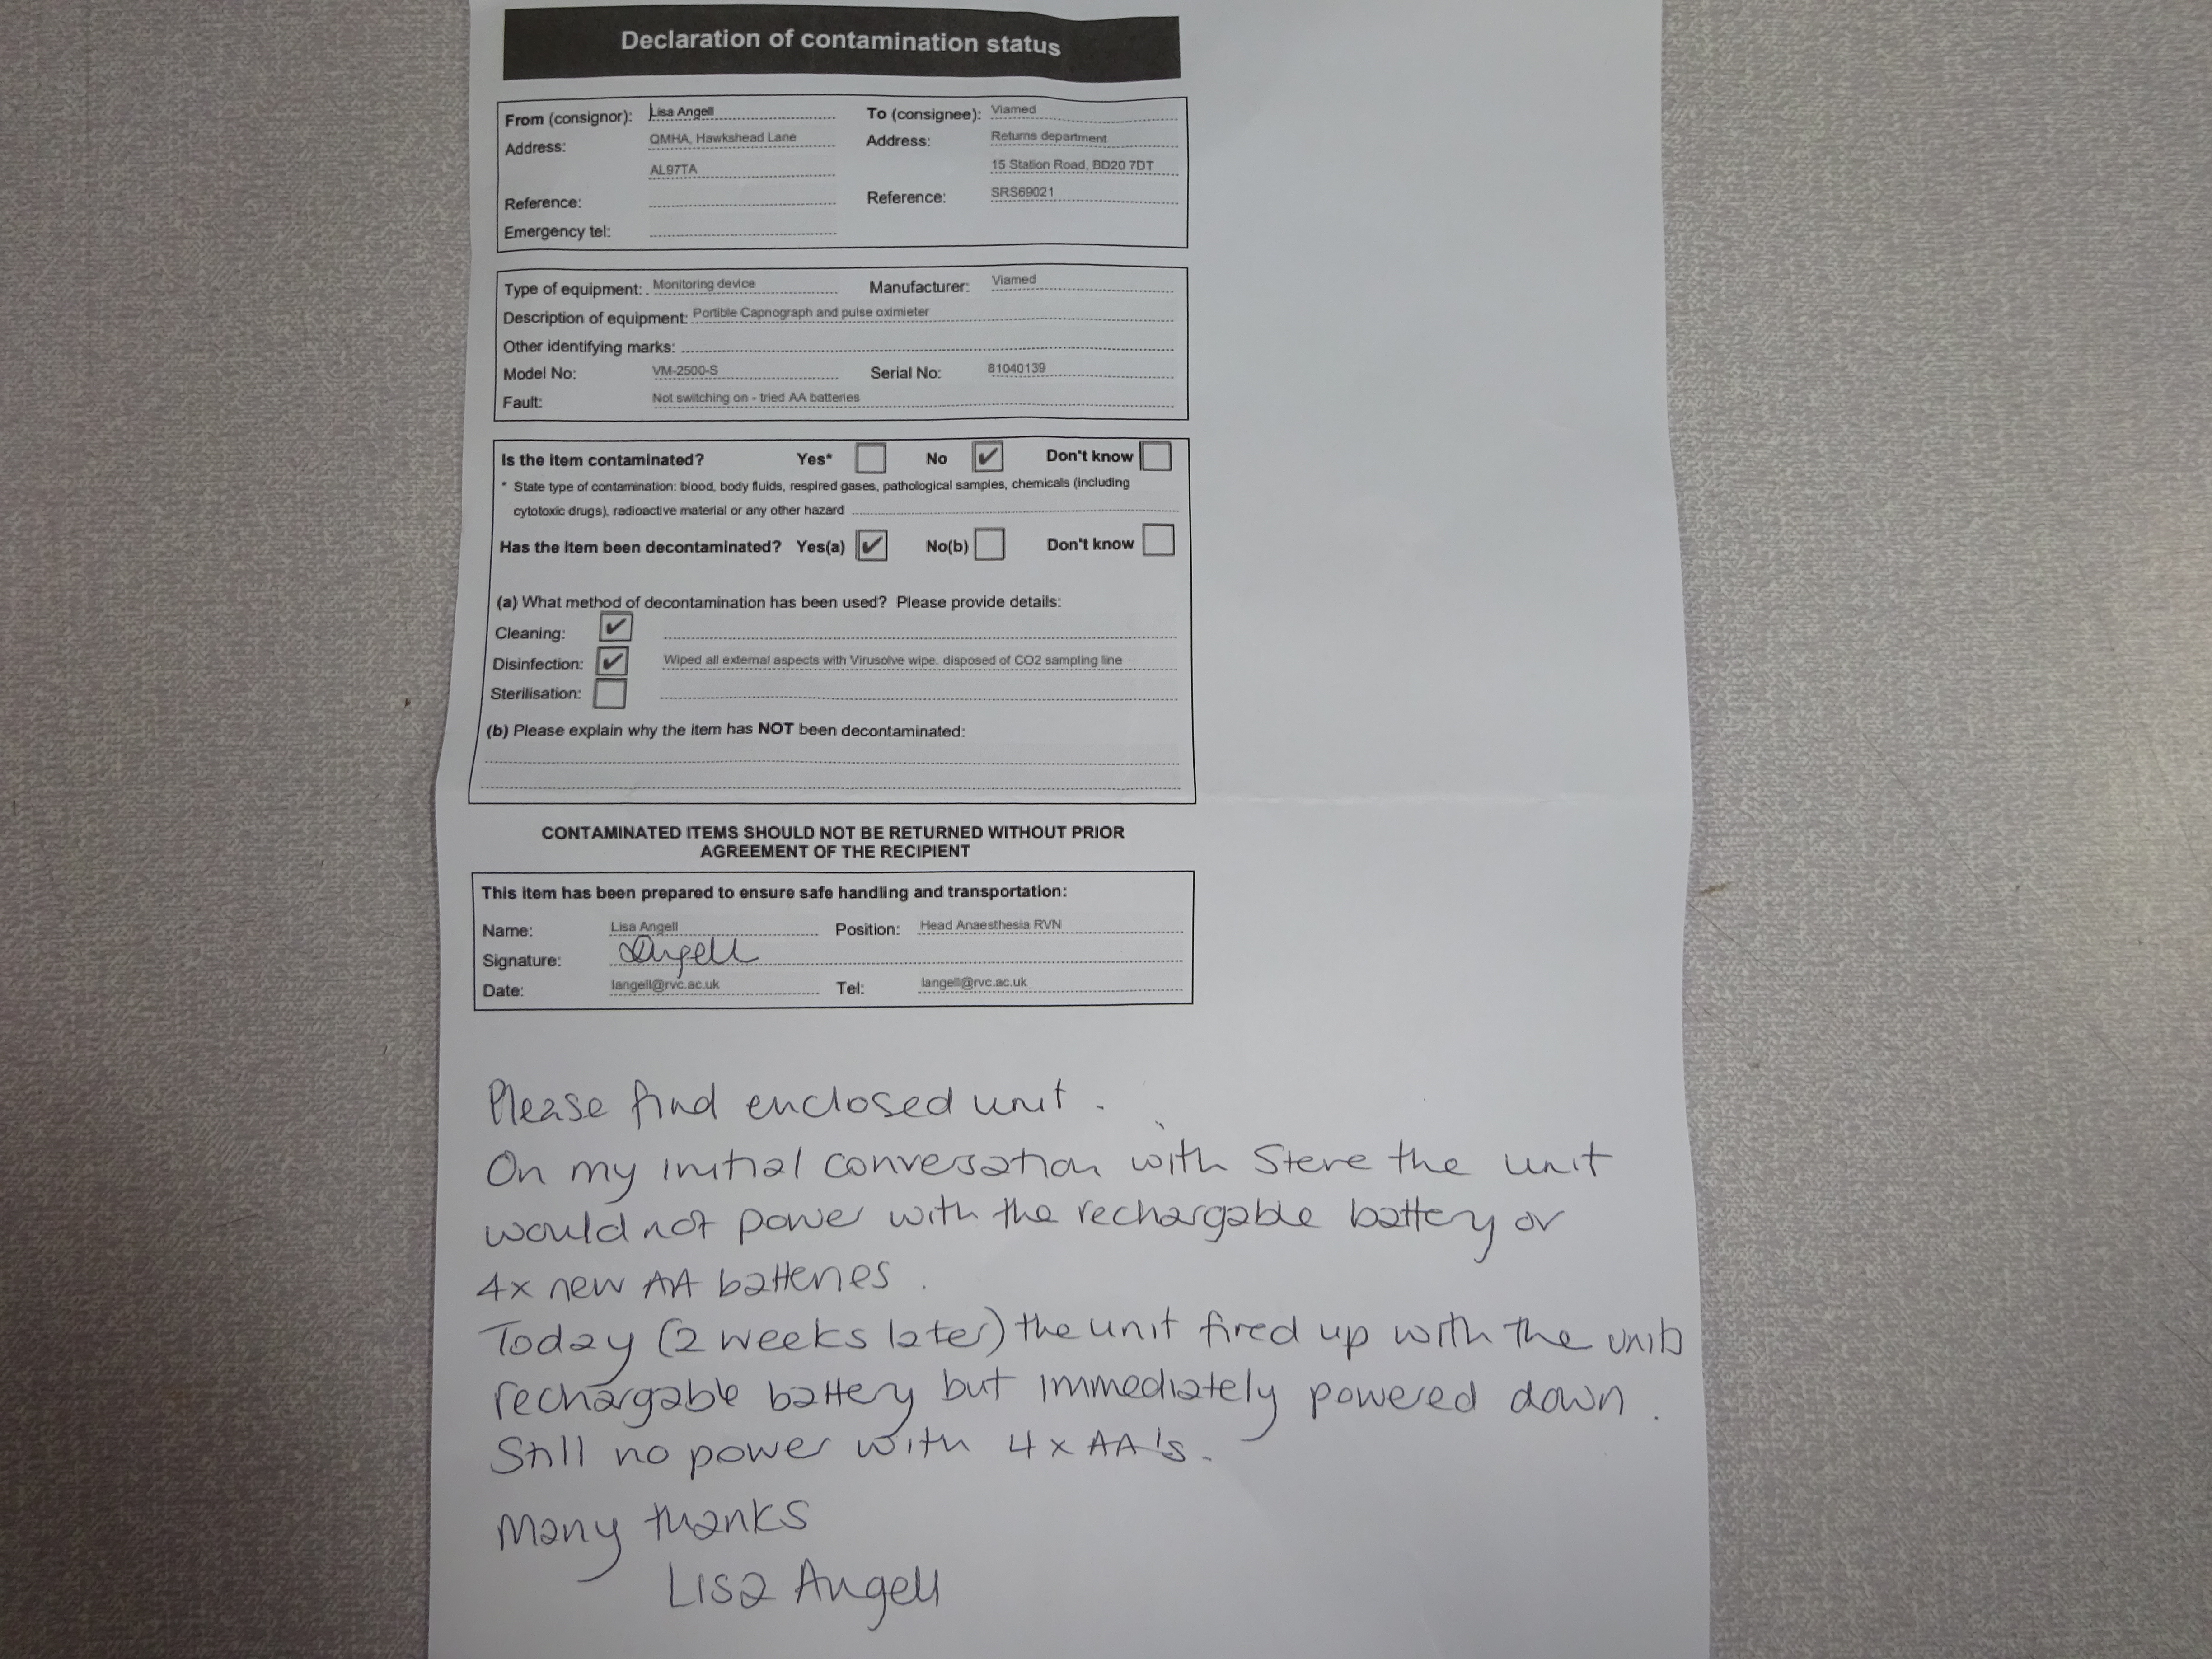 Declaration of contamination status
From (consignor): Lisa Angell To (consignee): Viamed
Address: QMHA, Hawkshead Lane Address: Returns department
AL97TA 15 Station Road, BD20 7DT
Reference: Reference: SRS69021
Emergency tel:
Type of equipment: Monitoring device Manufacturer: Viamed
Description of equipment: Portible Capnograph and pulse oximieter
Other identifying marks:
Model No: VM-2500-S Serial No: 81040139
Fault: Not switching on - tried AA batteries
Is the item contaminated? Yes* No ✔ Don't know
* State type of contamination: blood, body fluids, respired gases, pathological samples, chemicals (including
cytotoxic drugs), radioactive material or any other hazard
Has the item been decontaminated? Yes(a) ✔ No(b) Don't know
(a) What method of decontamination has been used? Please provide details:
Cleaning: ✔
Disinfection: ✔ Wiped all external aspects with Virusolve wipe. disposed of CO2 sampling line
Sterilisation:
(b) Please explain why the item has NOT been decontaminated:
CONTAMINATED ITEMS SHOULD NOT BE RETURNED WITHOUT PRIOR
AGREEMENT OF THE RECIPIENT
This item has been prepared to ensure safe handling and transportation:
Name: Lisa Angell Position: Head Anaesthesia RVN
Signature: LAngell
Date: langell@rvc.ac.uk Tel: langell@rvc.ac.uk
Please find enclosed unit.
On my initial conversation with Steve the unit
would not power with the rechargable battery or
4x new AA batteries.
Today (2 weeks later) the unit fired up with the units
rechargable battery but immediately powered down.
Still no power with 4x AA's.
Many thanks
Lisa Angell